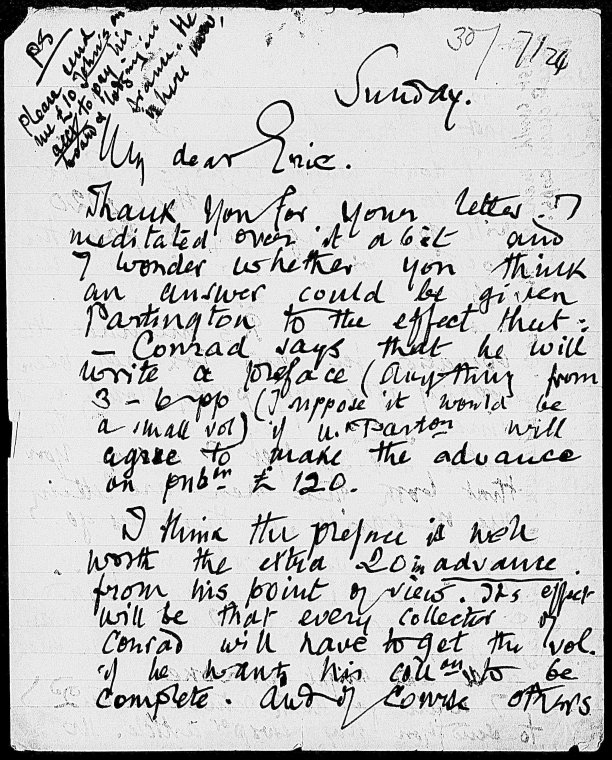 PS
Please send
me £10 John's on
acct to pay his
board & lodging in
France. He
is here now.
30/7/24
Sunday.
My dear Eric.
Thank you for your letter. I
meditated over it a bit and
I wonder whether you think
an answer could be given
Partington to the effect that:
– Conrad says that he will
write a preface (anything from
3 – 6 pp (I suppose it would be
a small vol) if Mr Parton will
agree to make the advance
on pubn £ 120.
I think the preface is well
worth the extra 20 in advance.
from his point of view. Its effect
will be that every collector of
Conrad will have to get the vol.
if he wants his collon to be
complete. And of course others